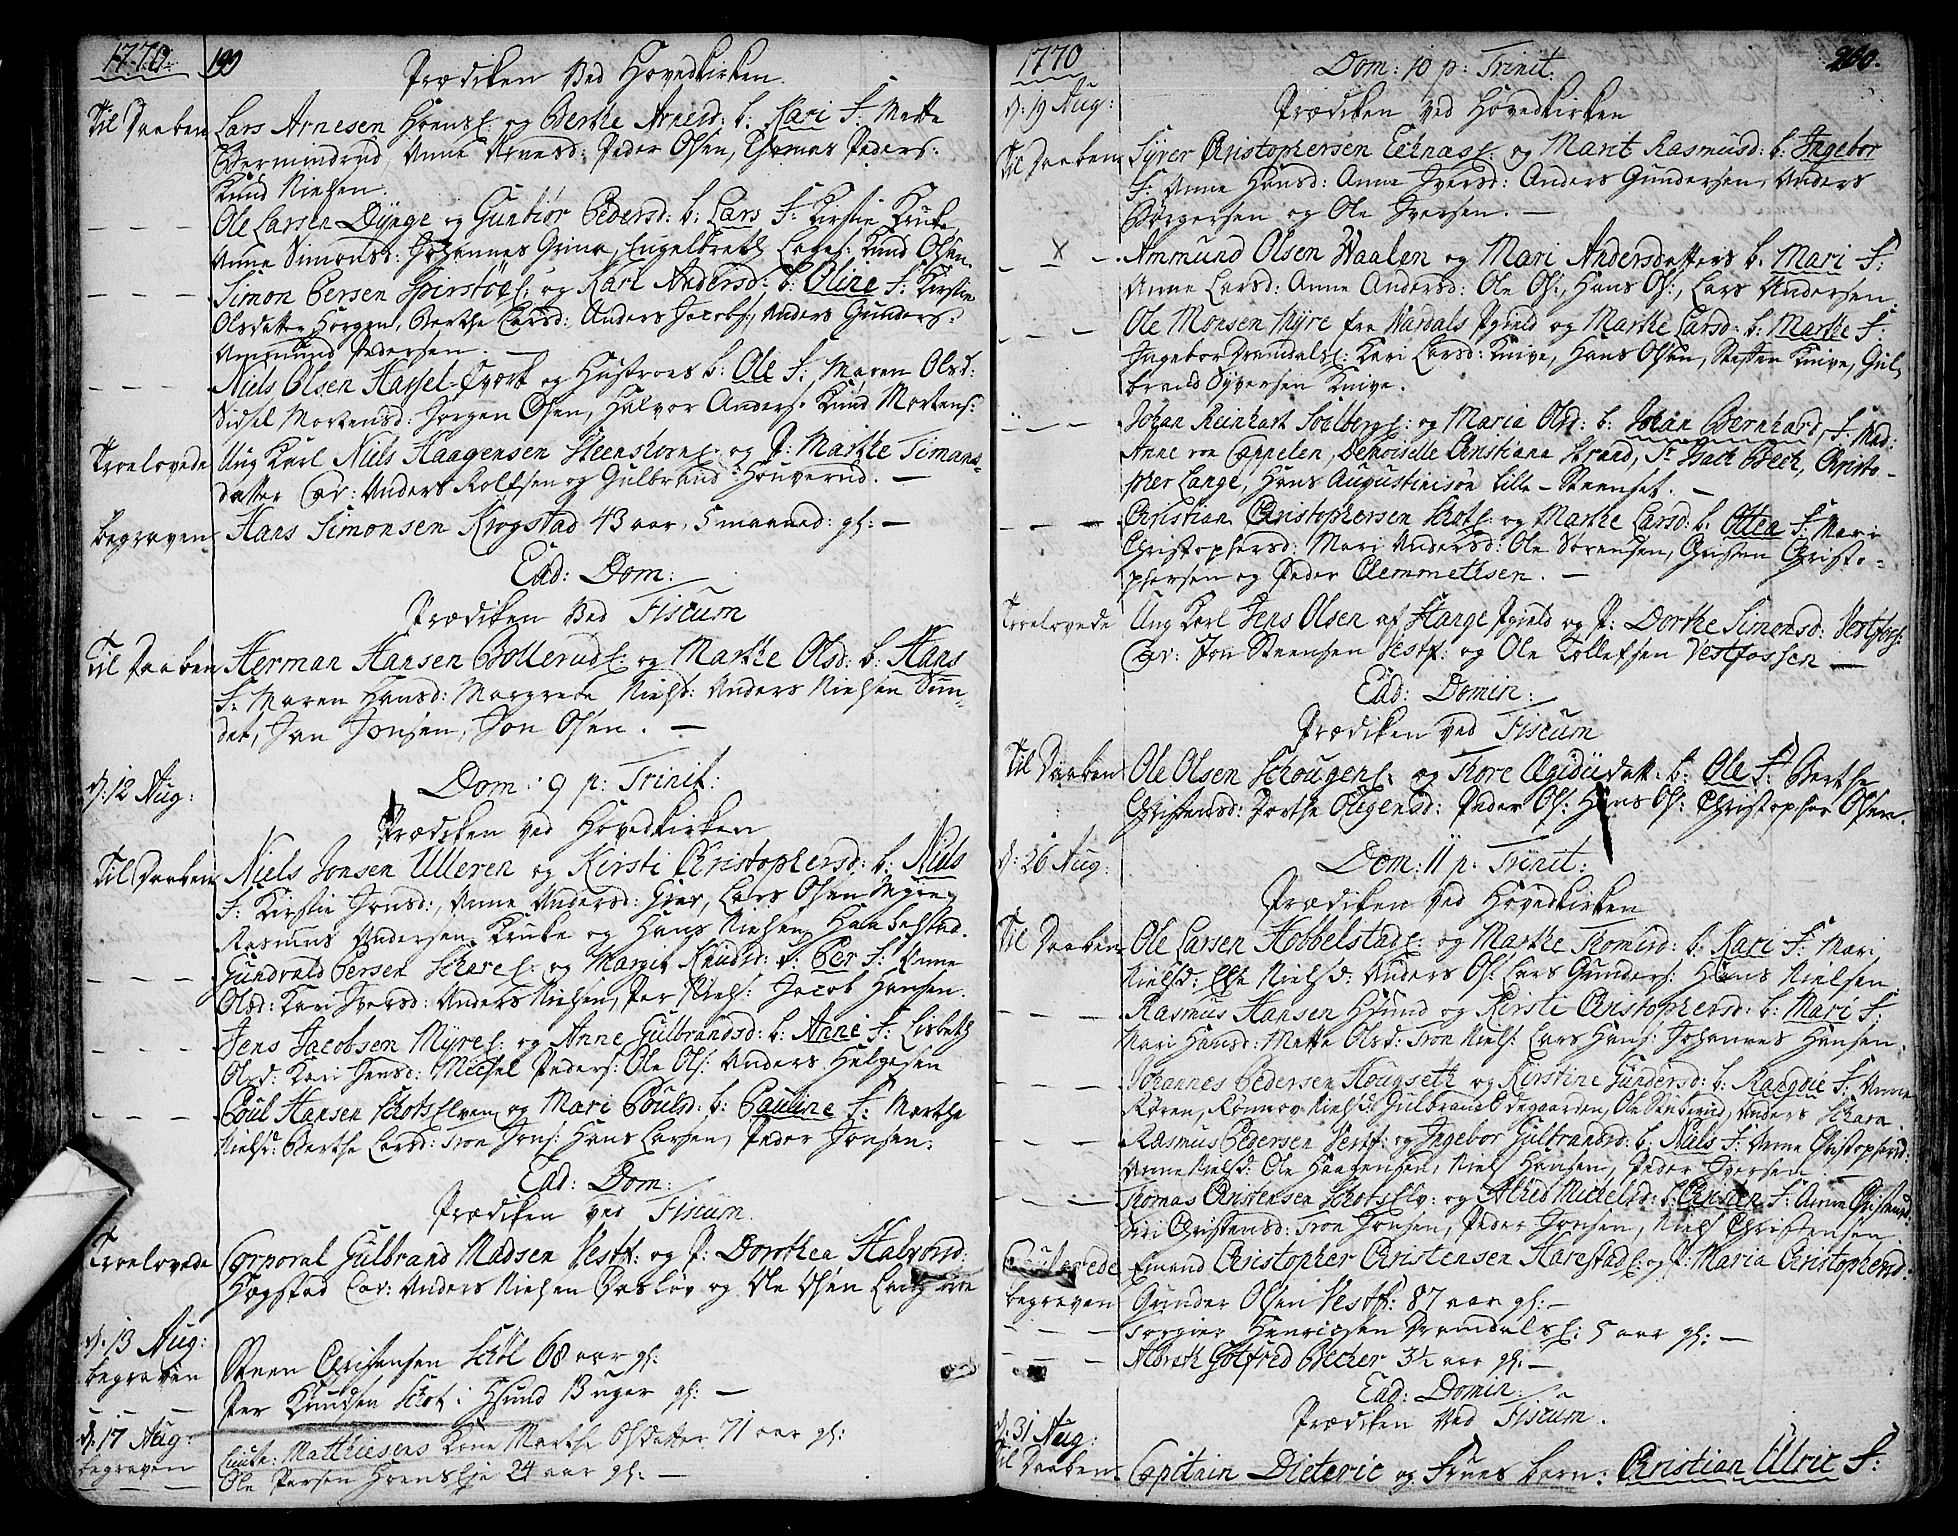 1770. 199
Prædiken Ved Hovedkirken.
Til Daaben Lars Arnesen Horns E: og Berthe Arnesd: b: Kari F: Mette
Anne Arnesd: Peder Olsen, Thomas Peders:
Knud Nielsen.
- - - Ole Larsen Dÿnge og Gunbiør Pedersd: b: Lars F: Kirstie Kruke
Anne Simonsd: Johannes Grina, Engelbreth Lars: Knud Olsen.
- - - Simon Persen E: og Kari Andersd: b: Oline F: Kirstie
Olsdatter Horgen, Berthe Larsd: Anders Jacobs: Anders Gunders:
Ammund Pedersen -
- - - Niels Olsen Hassel-Værk og Hustroes b: Ole F: Maren Olsd:
Sidsel Mortensd: Jorgen Olsen, Halvor Anders: Knud Mortens:
Troelovede Ung Karl Niels Haagensen E: og P: Marthe Simons-
datter Cav: Anders Rolfsen og Gulbrand Houverud. -
begraven Hans Simonsen Krogstad 43 aar, 5 maaned: gl: -
Ead: Dom:
Prædiken Ved Fiscum
Til Daaben Herman Hansen Bollerud E: og Marthe Olsd: b: Hans
F: Maren Hansd: Margrede Nielsd: Anders Nielsen Sun-
det, Jan Jonsen, Jon Olsen. -
d: 12 Aug: Dom: 9 p: Trinit:
Prædiken ved Hovedkirken
Til Daaben Niels Jonsen Ulleren og Kirsti Christophersd: b: Niels
F: Kirstie Jonsd:, Anne Andersd: Lars Olsen
Rasmus Andersen Kruke og Hans Nielsen Haabelstad.
- - - Gundvald Persen Schare E: og Margit Knudsd: b: Per F: Anne
Olsd: Kari Iversd: Anders Nielsen, Per Niels: Jacob Hansen.
- - - Jens Jacobsen Myre E: og Anne Gulbrandsd: b: Anne F: Lisbeth
Olsd: Kari Jensd: Michel Peders: Ole Ols: Anders Helgesen
- - - Poul Hansen Schotselven og Mari Poulsd: b: Pauline F: Marthe
Nielsd: Berthe Larsd: Tron Jons: Hans Larsen, Peder Jonsen.
Ead: Dom:
Prædiken ved Fiscum.
Troelovede Corporal Gulbrand Madsen Vestf: og P: Dorthea Halvorsd:
Hogstad Cav: Anders Nielsen og Ole Olsen
d: 13 Aug: Steen Christensen Schöl 68 aar gl:
begraven
- - - Per Knudsen Schot i Hsund 13 uger gl: -
d: 17 Aug: Lieute: Mathiesens Kone Marthe Olsdatter 71 aar gl:
begraven Ole Persen Horns Eje 24 aar gl: -
1770 200.
Dom: 10 p: Trinit:
d: 19 Aug: Prædiken ved Hovedkirken
Til Daaben Syver Christophersen Eknas E: og Marit Rasmusd: b: Ingebor
F: Anne Hansd: Anne Iversd: Anders Gundersen, Anders
Børgersen og Ole Iversen. -
- X - Ammund Olsen Haalen og Mari Andersdatters b. Mari F:
Anne Larsd: Anne Andersd: Ole Ols:, Hans Ols:, Lars Andersen.
- - Ole Monsen Myre fra Wardals Pgield og Marthe Larsd: b: Marthe F:
Ingebor Dramdals E: Kari Larsd: Knive, Hans Olsen, Steffen Knive, Gul-
brand Syversen Knive.
- - - Johan Reinhart Soelberg E: og Maria Olsd: b: Johan Bernhard, F: Mad:
Anne von Cappelen, Demoiselle Christiane Strand, Sr Isach Bech, Christo-
pher Lange, Hans Augustinisøn Lille-Steenset. -
- - - Christian Christophersen Schot E: og Marthe Larsd: b: Otten F: Mari
Christophersd: Mari Andersd: Ole Sørensen, Christen Christo-
phersen og Peder Clemmetsen. -
Troelovede Ung Karl Jens Olsen af Stange Pgield og P: Dorthe Simonsd: Vestfoss:
Cav: Jon Steensen Vestf: og Ole Tollefsen Vestfossen -
Ead: Domin:
Prædiken ved Fiscum
Til Daaben Ole Olsen Schougen E: og Thore Ægidiidatt: b: Ole F: Berthe
Christensd: Dorthe Peder Ols: Hans Ols: Christopher Olsen.
d: 26 Aug: Dom: 11 p: Trinit:
Prædiken ved Hovedkirken
Til Daaben Ole Larsen Hobbelstad E: og Marthe Thomisd: b: Kari F: Mari
Nielsd: Else Nielsd: Anders Ols: Lars Gunders: Hans Nielsen.
- - - Rasmus Hansen Hsund og Kirsti Christophersd: b: Mari F:
Mari Hansd: Mette Olsd: Tron Niels: Lars Hans: Johannes Hansen.
- - - Johannes Pedersen Hougseth og Kirstine Gundersd: b: Rangdie F: Anne
Røren, Rønnov Nielsd: Gulbrand Ødegaarden, Ole Anders Schara.
- - - Rasmus Pedersen Vestf: og Ingebor Gulbrandsd: b: Niels F: Anne Christophersd:
Anne Nielsd: Ole Haagensen, Niels Hansen, Peder Iversen -
- - - Thomas Christensen Schotselv: og Alhed Michelsd: b: Christen F: Anne Christensd:
Siri Christensd: Tron Jonsen, Peder Jonsen, Niels Christensen.
Emand Christopher Christensen Harestad E: og P: Maria Christophersd:
begraven Gunder Olsen Vestf: 87 aar gl: -
- - - Torgier Henricsen Dramdals E: 5 aar gl: -
- - - Albreth Gotfred Becher 3½ aar gl: -
Ead: Domin:
Prædiken Ved Fiscum.
d: 31 Aug:
Til Daaben Capitain Dieteric og Frues barn: Christian Ulric F: